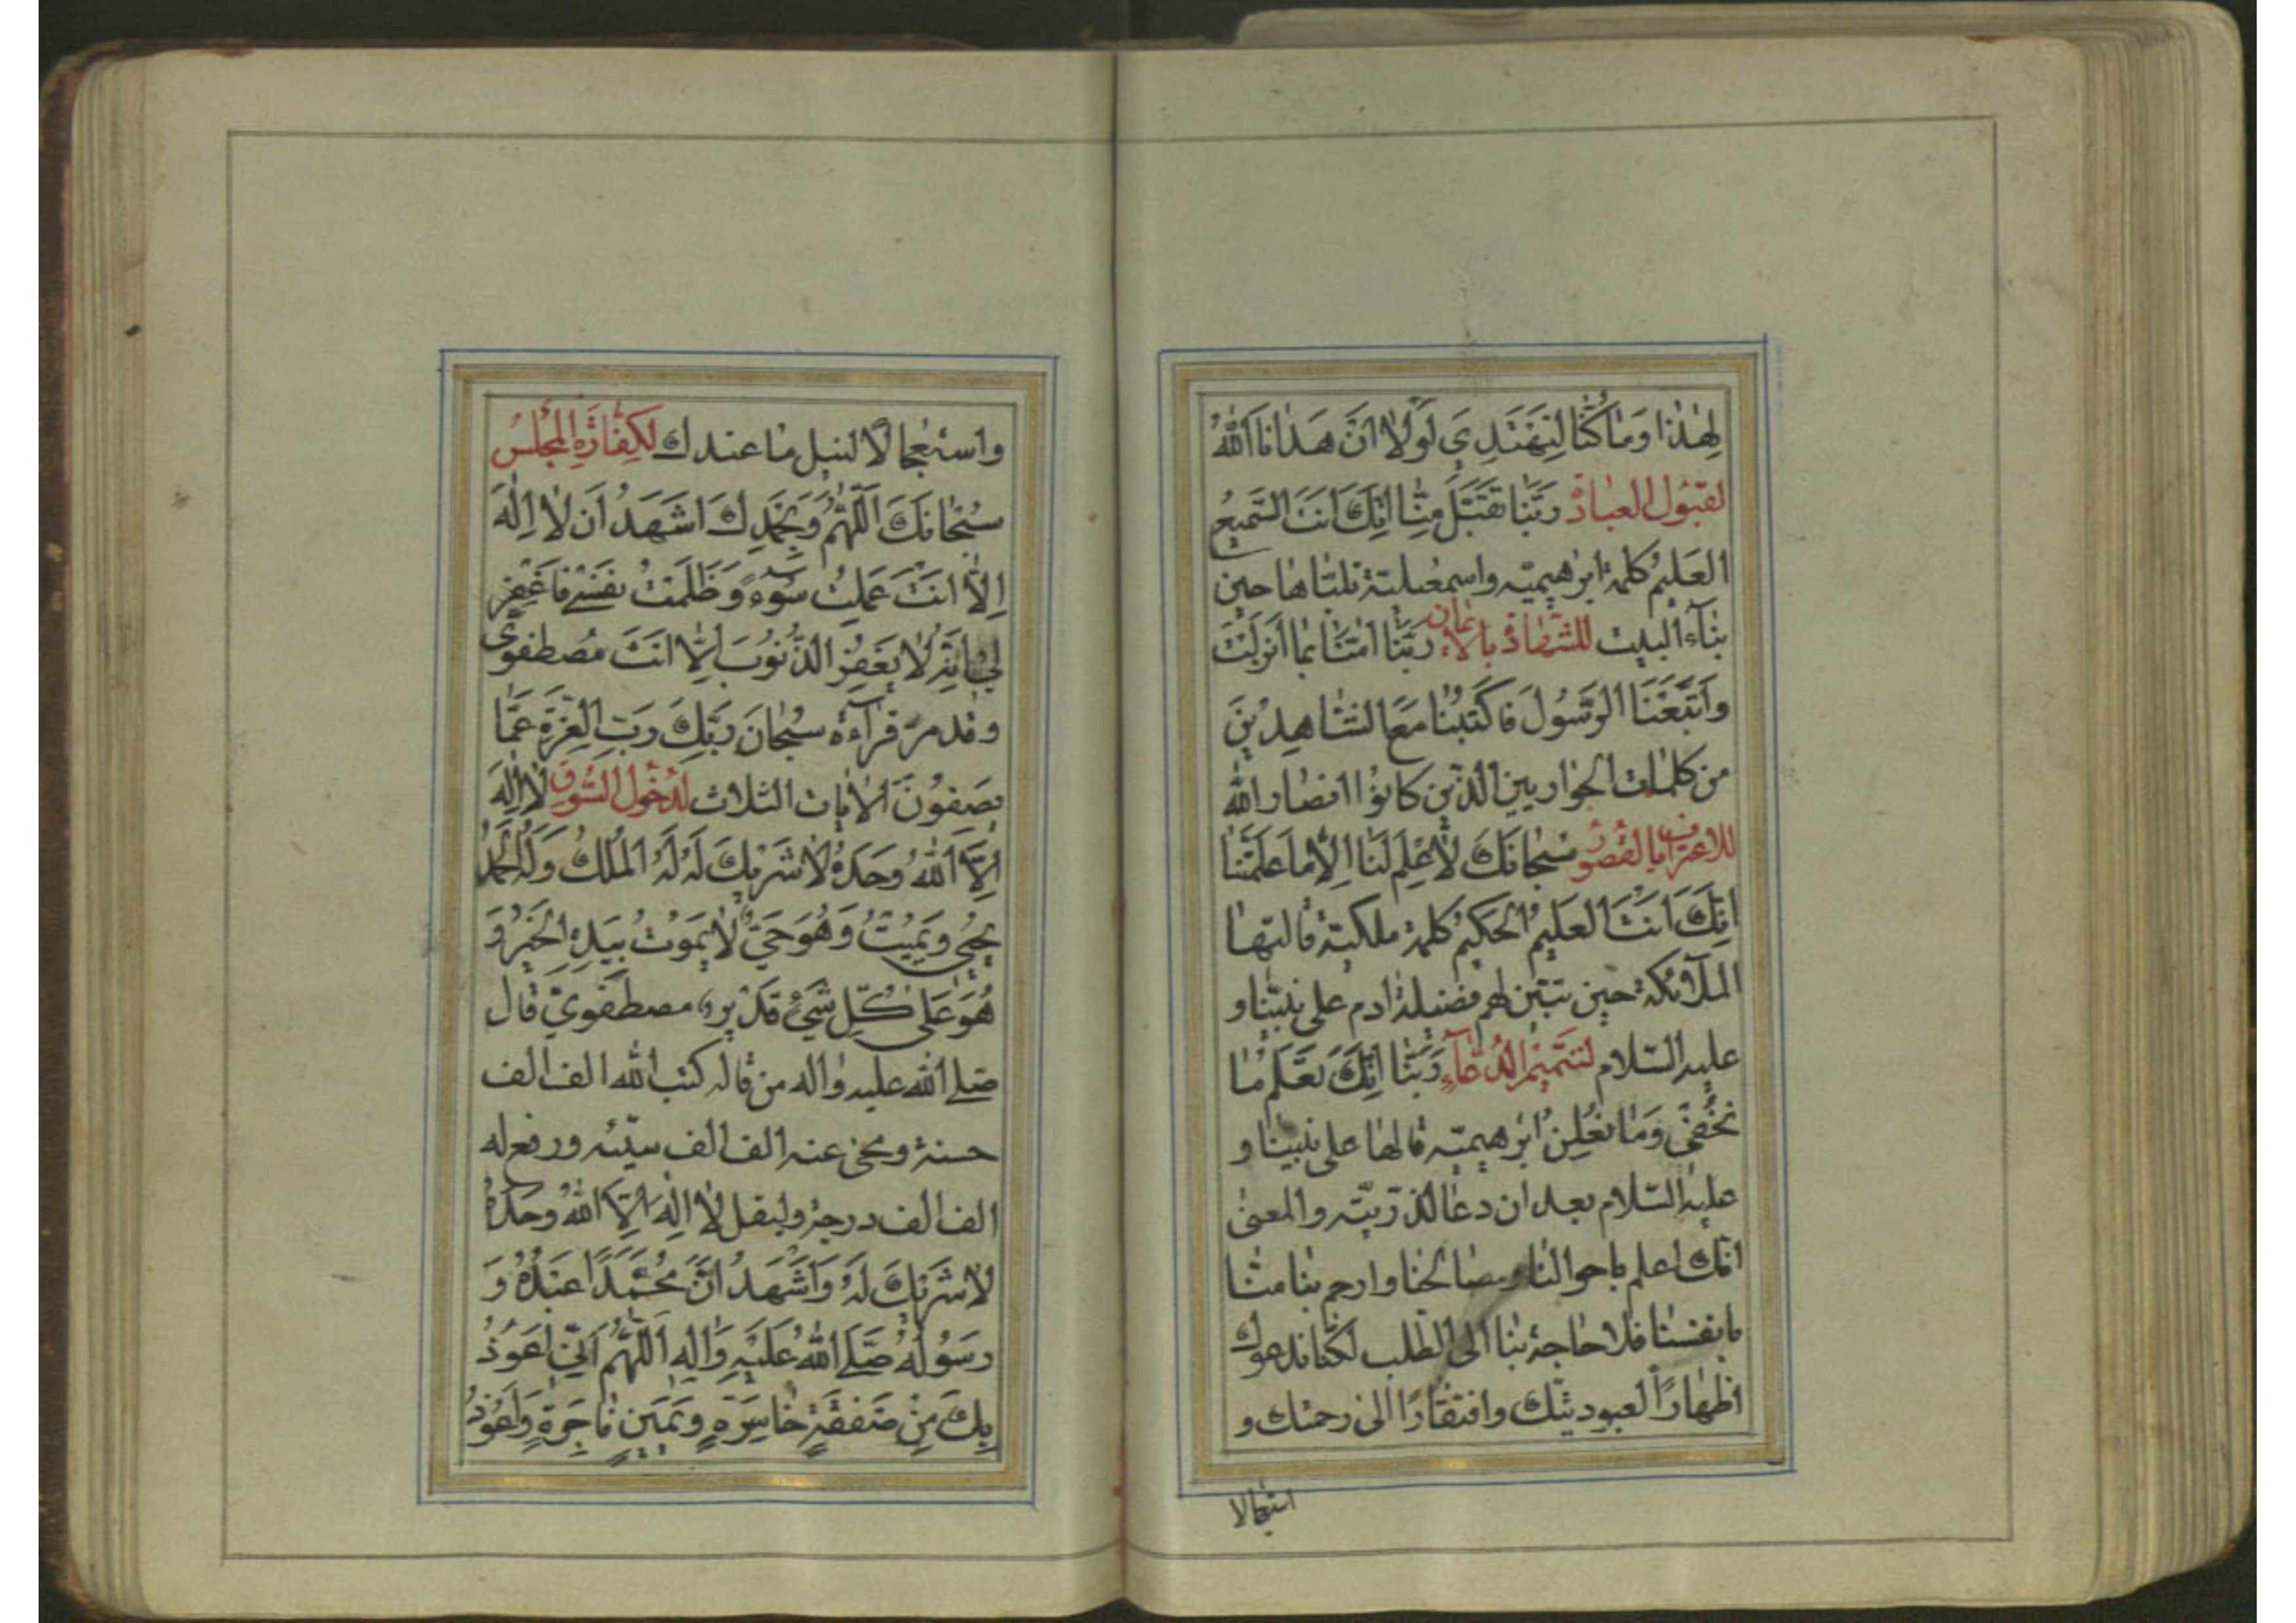 لِهٰذا وَمٰا كُنّٰا لِنَهْتَدِيَ لَوْلٰا اَنْ هَدٰانَا اللّٰهُ
لقبُول العبادة رَبَّنٰا تَقَبَّلْ مِنّٰا اِنَّكَ اَنْتَ السَّميعُ
العَليمُ كلمة ابرٰهيميّه واسمعيليّة تلتاها حين
بنآء البيت للشّهادة بالايمان رَبَّنٰا اٰمَنّٰا بِمٰا اَنْزَلْتَ
وَاتَّبَعْنَا الرَّسُولَ فَاكْتُبْنٰا مَعَ الشّٰاهِدينَ
من كلمات الحواريين الذين كانوا انصار اللّٰه
للاعتراف بالقصُور سُبْحٰانَكَ لٰا عِلْمَ لَنٰا اِلّٰا مٰا عَلَّمْتَنٰا
اِنَّكَ اَنْتَ العَليمُ الحَكيمُ كلمة ملكيّة قالتها
الملآئكة حين تبيّن لهم فضيلة ادم على نبيّنا و
عليه السّلام لتتميم الدُّعآءِ رَبَّنٰا اِنَّكَ تَعْلَمُ مٰا
نُخْفي وَمٰا نُعْلِنُ ابرٰهيميّه قالها على نبيّنا و
عليه السّلام بعد ان دعا لذرّيّته والمعنى
انّك اعلم باحوالنا ومصالحنا وارحم بنا منّا
بانفسنا فلا حاجة بنا الى الطّلب لكنّا ندعوك
اظهارًا لعبوديّتك وافتقارًا الى رحمتك و
استعجالا
واستعجالًا لنيل ما عندك لكفّارة المجلس
سُبْحٰانَكَ اَللّٰهُمَّ وَبِحَمْدِكَ اَشْهَدُ اَنْ لٰا اِلٰهَ
اِلّٰا اَنْتَ عَمِلْتُ سُوءً وَظَلَمْتُ نَفْسي فَاغْفِرْ
لي اِنَّهُ لٰا يَغْفِرُ الذُّنُوبَ اِلّٰا اَنْتَ مُصطفوىّ
وقد مرّ قرآءة سُبْحٰانَ رَبِّكَ رَبِّ العِزَّةِ عَمّٰا
يَصِفُونَ الاٰيات الثلاث لدُخول السُّوق لٰا اِلٰهَ
اِلَّا اللّٰهُ وَحْدَهُ لٰا شَريكَ لَهُ لَهُ المُلْكُ وَلَهُ الحَمْدُ
يُحْيي وَيُميتُ وَهُوَ حَيٌّ لٰا يَمُوتُ بِيَدِهِ الخَيْرُ وَ
هُوَ عَلىٰ كُلِّ شَيْءٍ قَديرٌ مصطفويّ قال
صلى اللّٰه عليه واله من قاله كتب اللّٰه له الف الف
حسنة ومحى عنه الف الف سيّئه ورفع له
الف الف درجة وليقل لٰا اِلٰهَ اِلَّا اللّٰهُ وَحْدَهُ
لٰا شَريكَ لَهُ وَاَشْهَدُ اَنَّ مُحَمَّدًا عَبْدُهُ وَ
رَسُولُهُ صَلَّى اللّٰهُ عَلَيْهِ وَاٰلِهِ اَللّٰهُمَّ اِنّي اَعُوذُ
بِكَ مِنْ صَفْقَةٍ خٰاسِرَةٍ وَيَمينٍ فٰاجِرَةٍ وَاَعُوذُ